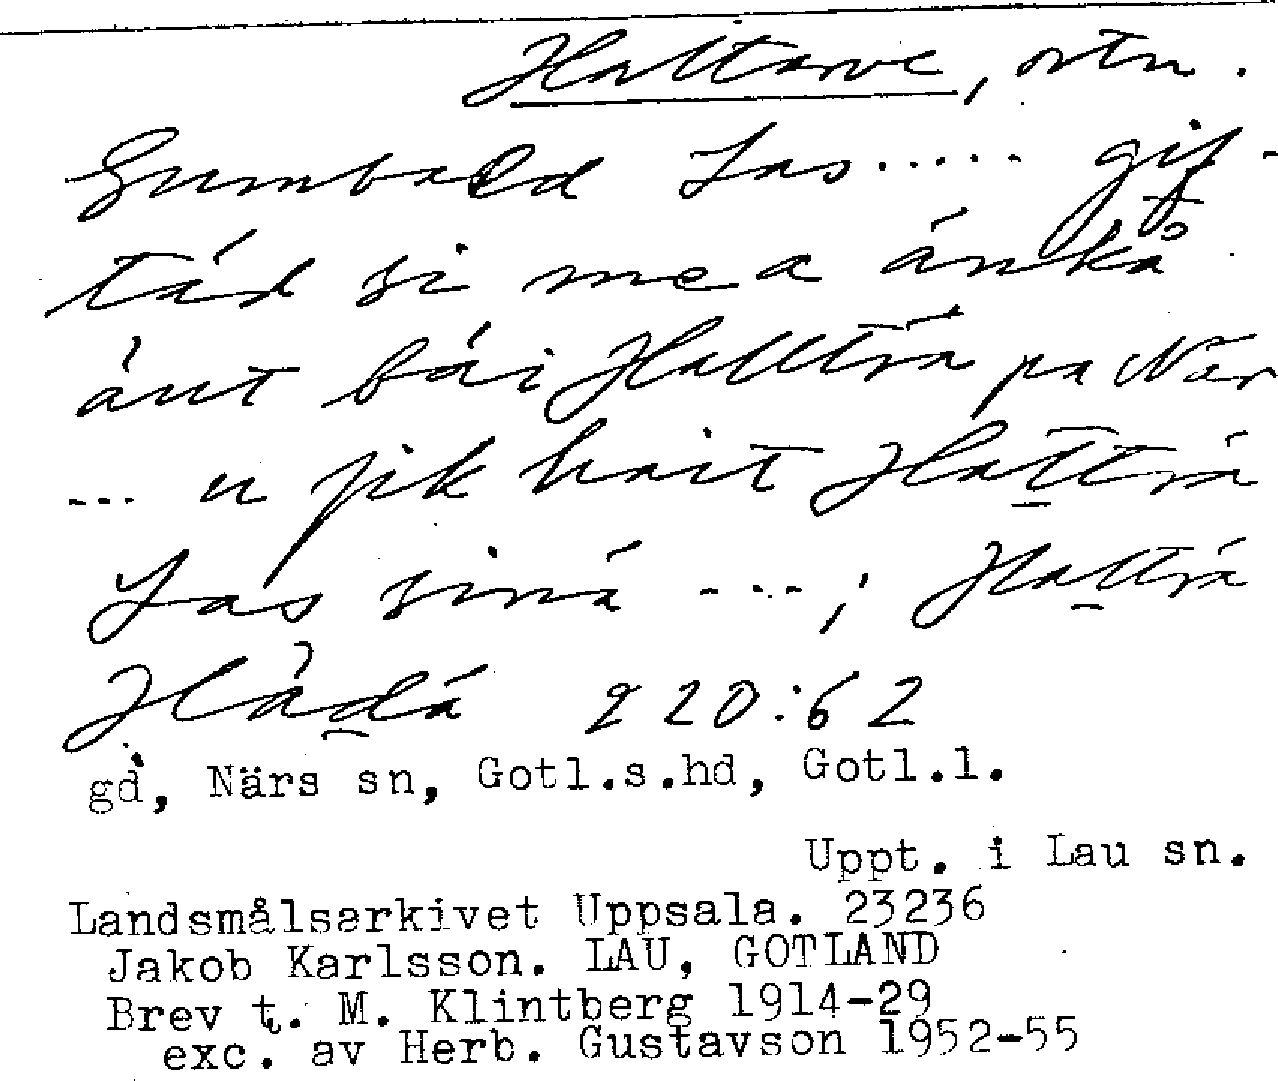 Hattarve, ortn.
Gumbald Las..... gif-
tád si me a ánkå
áut bái Hattrá pa När
... u jik hait Hattrá
Las siná ...; Hattrá
Hådá 2 20:62
gd, Närs sn, Gotl.s.hd, Gotl.l.
Uppt. i Lau sn.
Landsmålsarkivet Uppsala. 23236
Jakob Karlsson. LAU, GOTLAND
Brev t. M. Klintberg 1914-29
exc. av Herb. Gustavson 1952-55